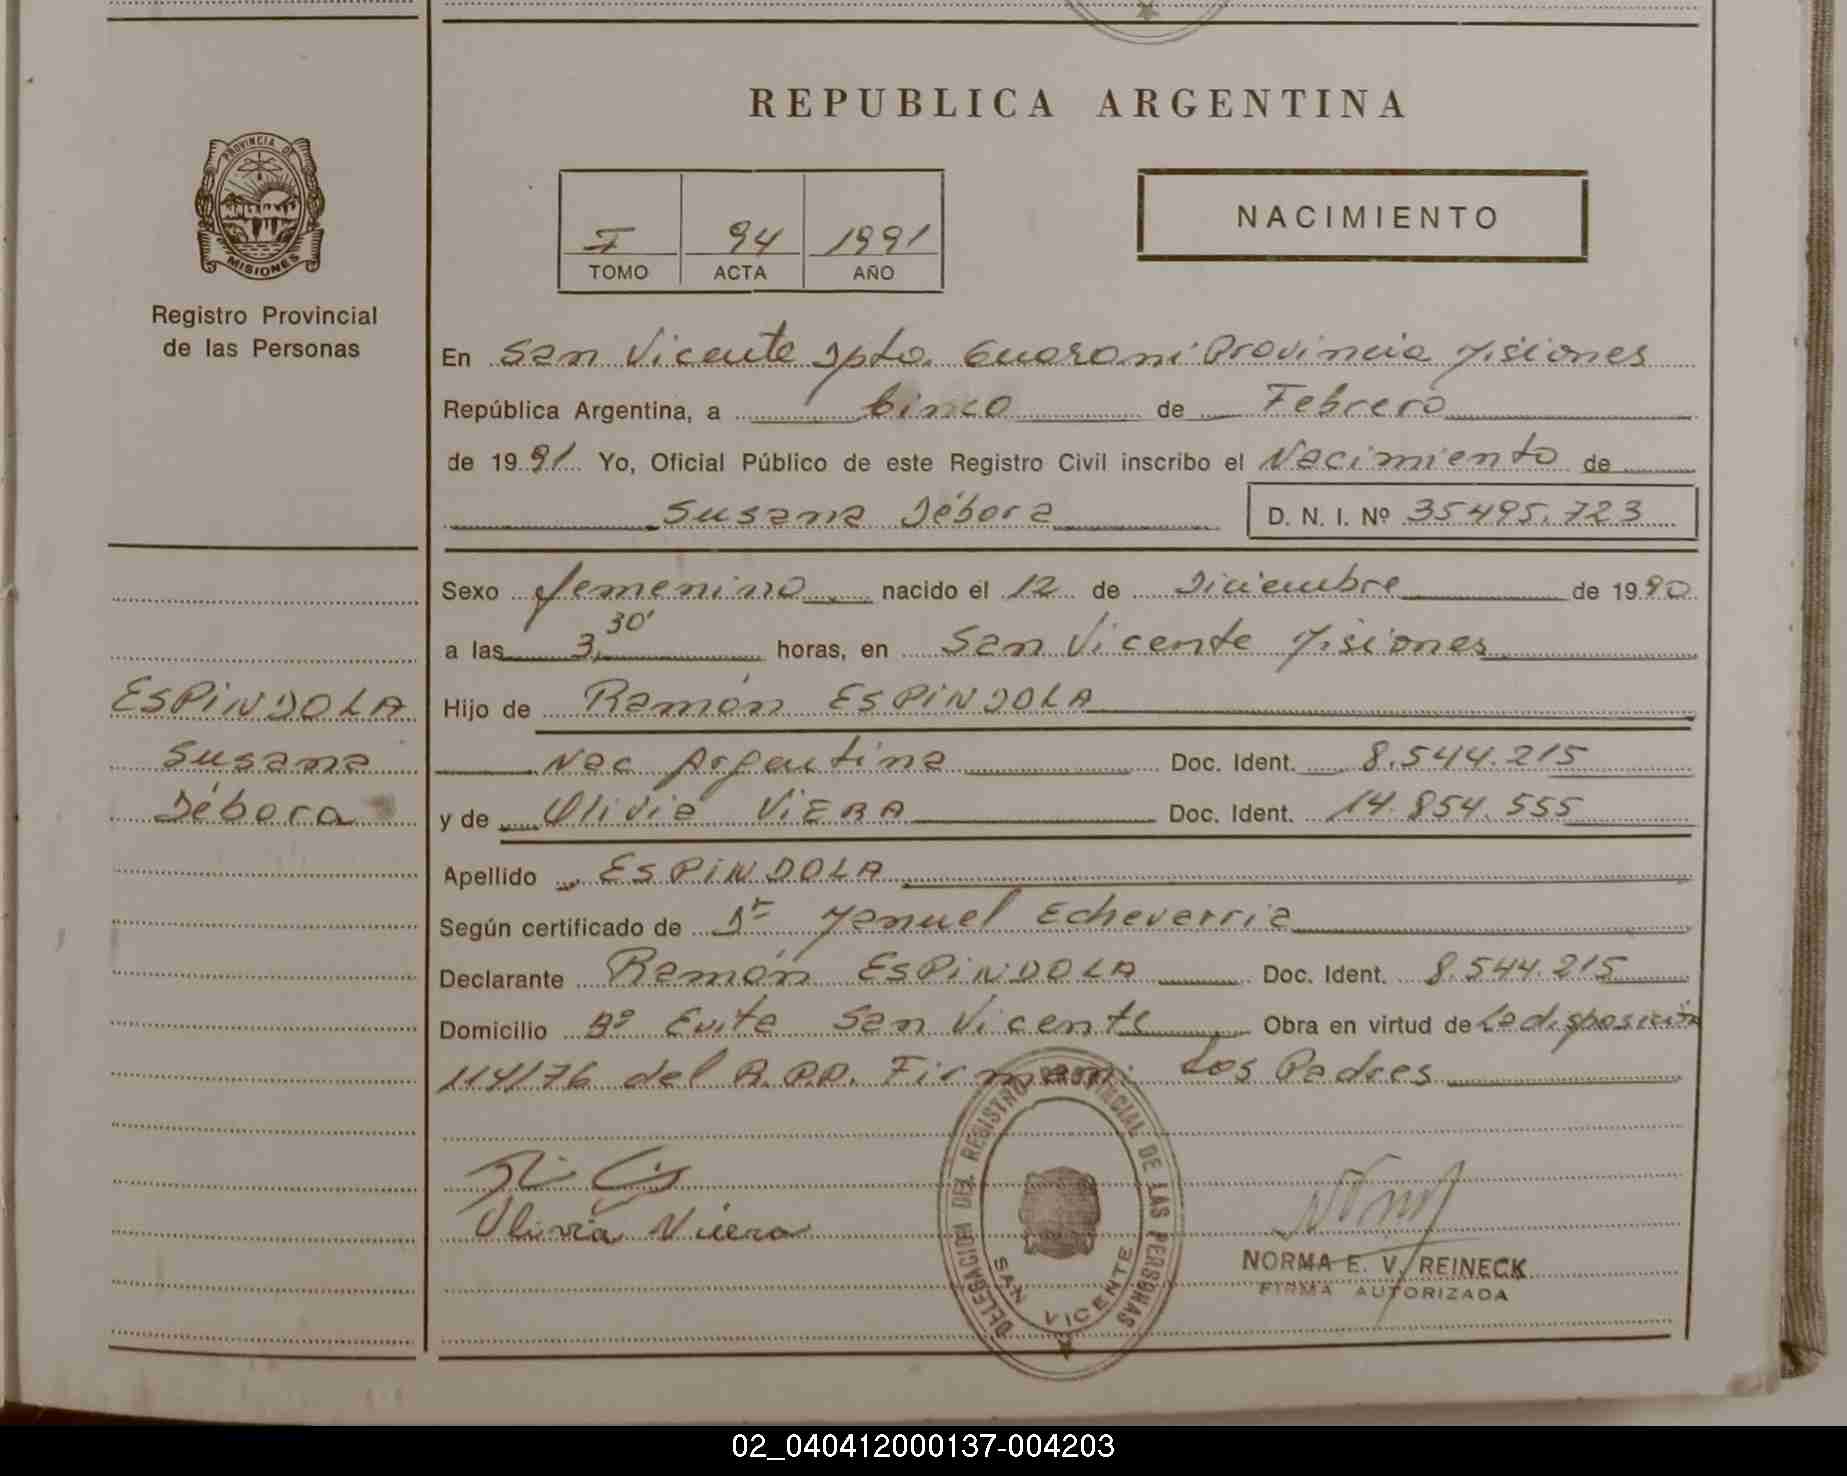 REPUBLICA ARGENTINA
PROVINCIA DE
MISIONES
Registro Provincial
de las Personas
I 94 1991
TOMO ACTA AÑO
NACIMIENTO
En San Vicente Dpto. Guarani Provincia Misiones
República Argentina, a Cinco de Febrero
de 1991 Yo, Oficial Público de este Registro Civil inscribo el Nacimiento de
Susana Débora D. N. I. Nº 35495.723
Sexo femenino nacido el 12 de Diciembre de 1990
a las 3,30' horas, en San Vicente Misiones
ESPINDOLA
Susana
Débora
Hijo de Ramón ESPINDOLA
Nac Argentina Doc. Ident. 8.544.215
y de Olivia VIERA Doc. Ident. 14.854.555
Apellido ESPINDOLA
Según certificado de Dr Manuel Echeverria
Declarante Ramón ESPINDOLA Doc. Ident. 8.544.215
Domicilio Bº Evita San Vicente Obra en virtud de La disposición
114/76 del R.P.P. Firman: Los Padres
Olivia Viera
DELEGACION DEL REGISTRO PROVINCIAL DE LAS PERSONAS
SAN VICENTE
NORMA E. V. REINECK
FIRMA AUTORIZADA
02_040412000137-004203